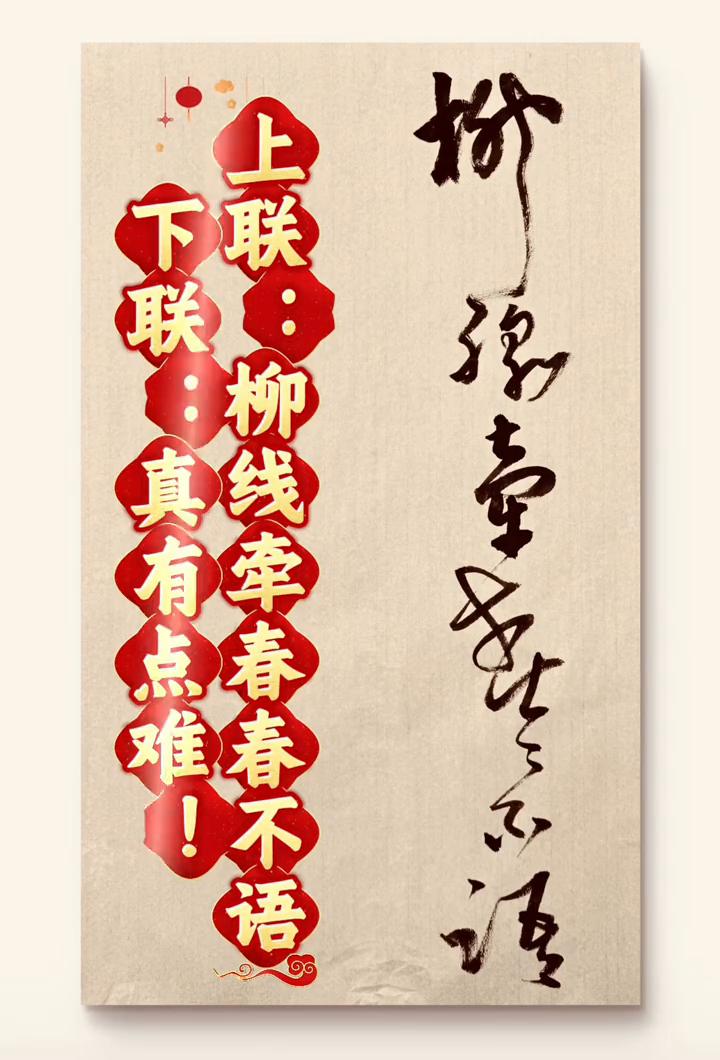 柳線牽春〻不語
上联：柳线牵春春不语
下联：真有点难！